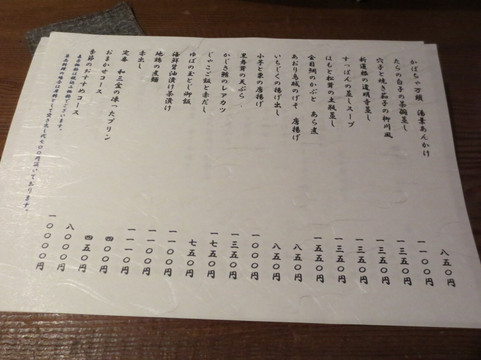 かぼちゃ万頭 湯葉あんかけ 八五〇円
たらの白子の茶碗蒸し 一一〇〇円
穴子と焼き茄子の柳川風 一三五〇円
新蓮根の道明寺蒸し 一三五〇円
すっぽんの蒸しスープ 一三五〇円
はもと松茸の土瓶蒸し 一五五〇円
金目鯛のかぶと あら煮 一五五〇円
あおり烏賊のげそ 唐揚げ 八五〇円
いちじくの揚げ出し 八五〇円
小芋と栗の唐揚げ 一〇〇〇円
黒舞茸の天ぷら 一三五〇円
かじき鮪のレアカツ 一七五〇円
じゃこご飯と赤だし 七五〇円
ゆばの玉とじ御飯 一一〇〇円
海鮮醤油漬け茶漬け 一一〇〇円
地鶏の煮麺 一一一〇円
赤出し 四〇〇円
定番 和三盆の凍ったプリン 四五〇円
おまかせコース 八〇〇〇円
季節のおすすめコース 一〇〇〇〇円
表示価格は税抜き価格でございます。
として突き出し代七〇〇円頂いております。